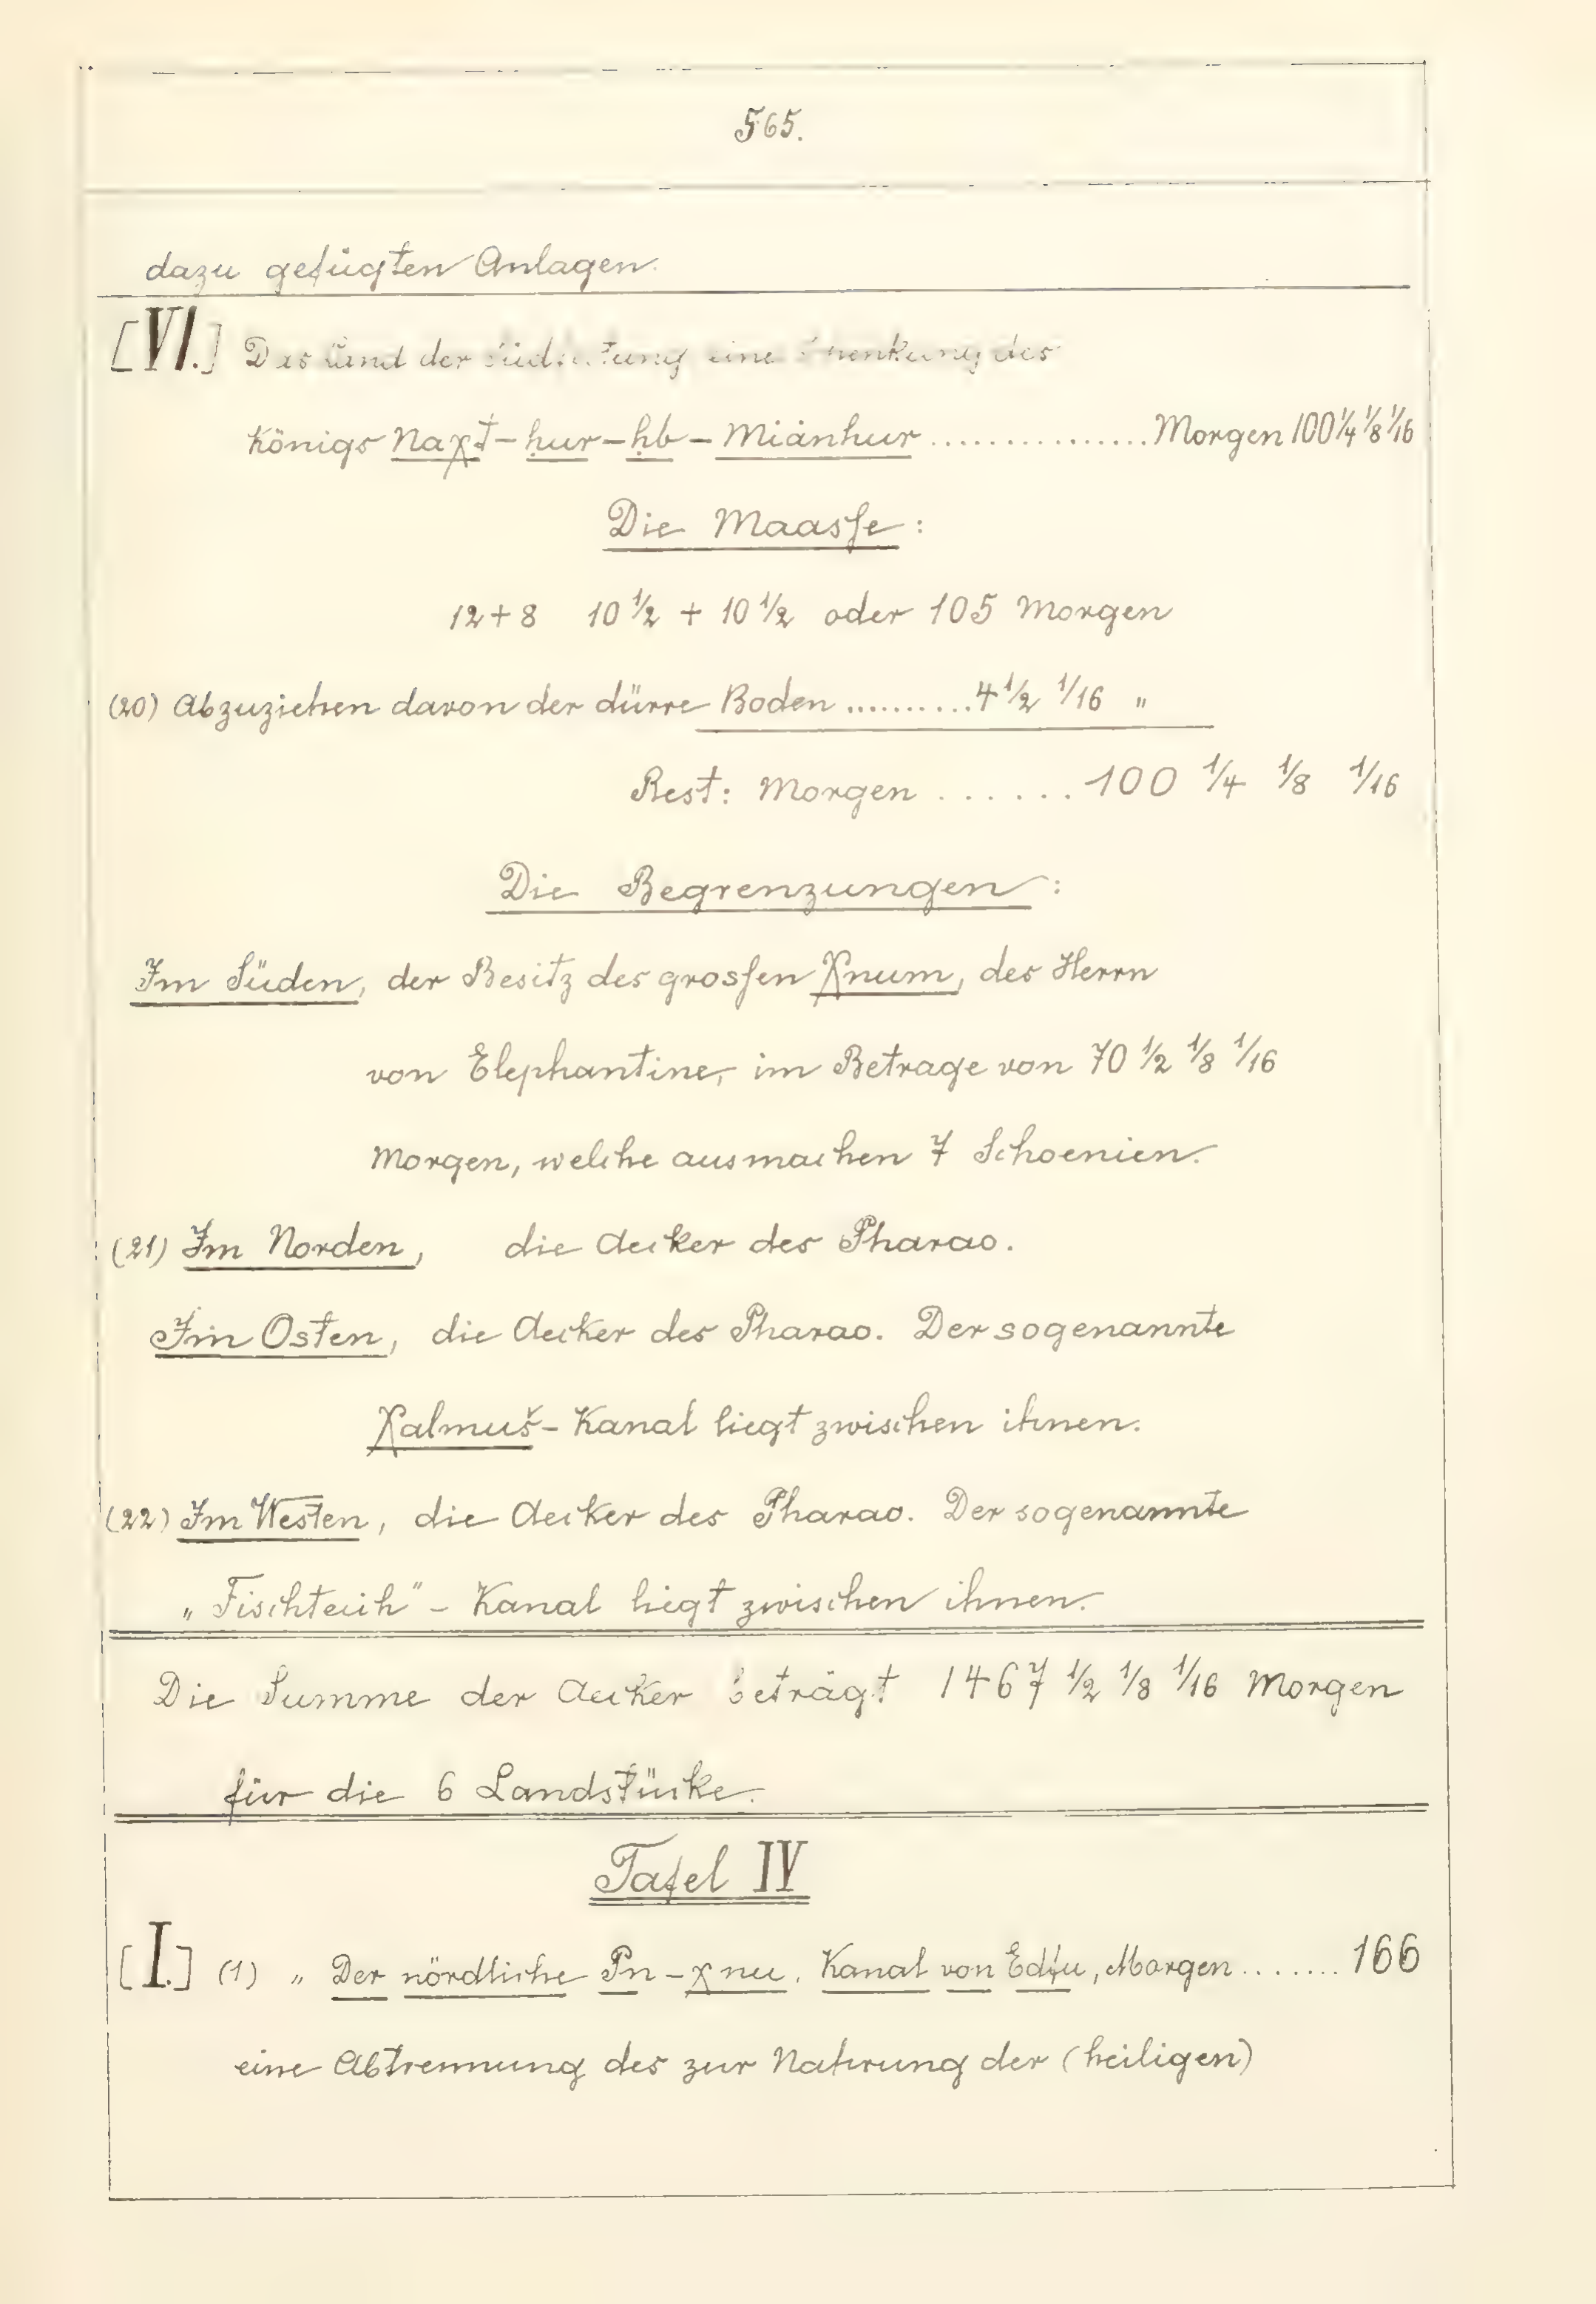 565.
dazu gefügten Anlagen.
[VI.] Das Land der eine des
Königs Naχt-ḥur-ḥb-Miȧnhur ............... Morgen 100 1/4 1/8 1/16
Die Maasse :
12+8 10 1/2 + 10 1/2 oder 105 Morgen
(20) Abzuziehen davon der dürre Boden .......... 4 1/2 1/16 "
Rest: Morgen ....... 100 1/4 1/8 1/16
Die Begrenzungen :
Im Süden, der Besitz des grossen Χnum, des Herrn
von Elephantine, im Betrage von 70 1/2 1/8 1/16
Morgen, welche ausmachen 7 Schoenien.
(21) Im Norden, die Aecker des Pharao.
Im Osten, die Aecker des Pharao. Der sogenannte
Χalmuš-Kanal liegt zwischen ihnen.
(22) Im Westen, die Aecker des Pharao. Der sogenannte
„Fischteich"- Kanal liegt zwischen ihnen.
Die Summe der Aecker beträgt 1467 1/2 1/8 1/16 Morgen
für die 6 Landstücke.
Tafel IV
[I.] (1) „ Der nördliche Pn-χnu. Kanal von Edfu, Morgen ....... 166
eine Abtrennung des zur Nahrung der (heiligen)